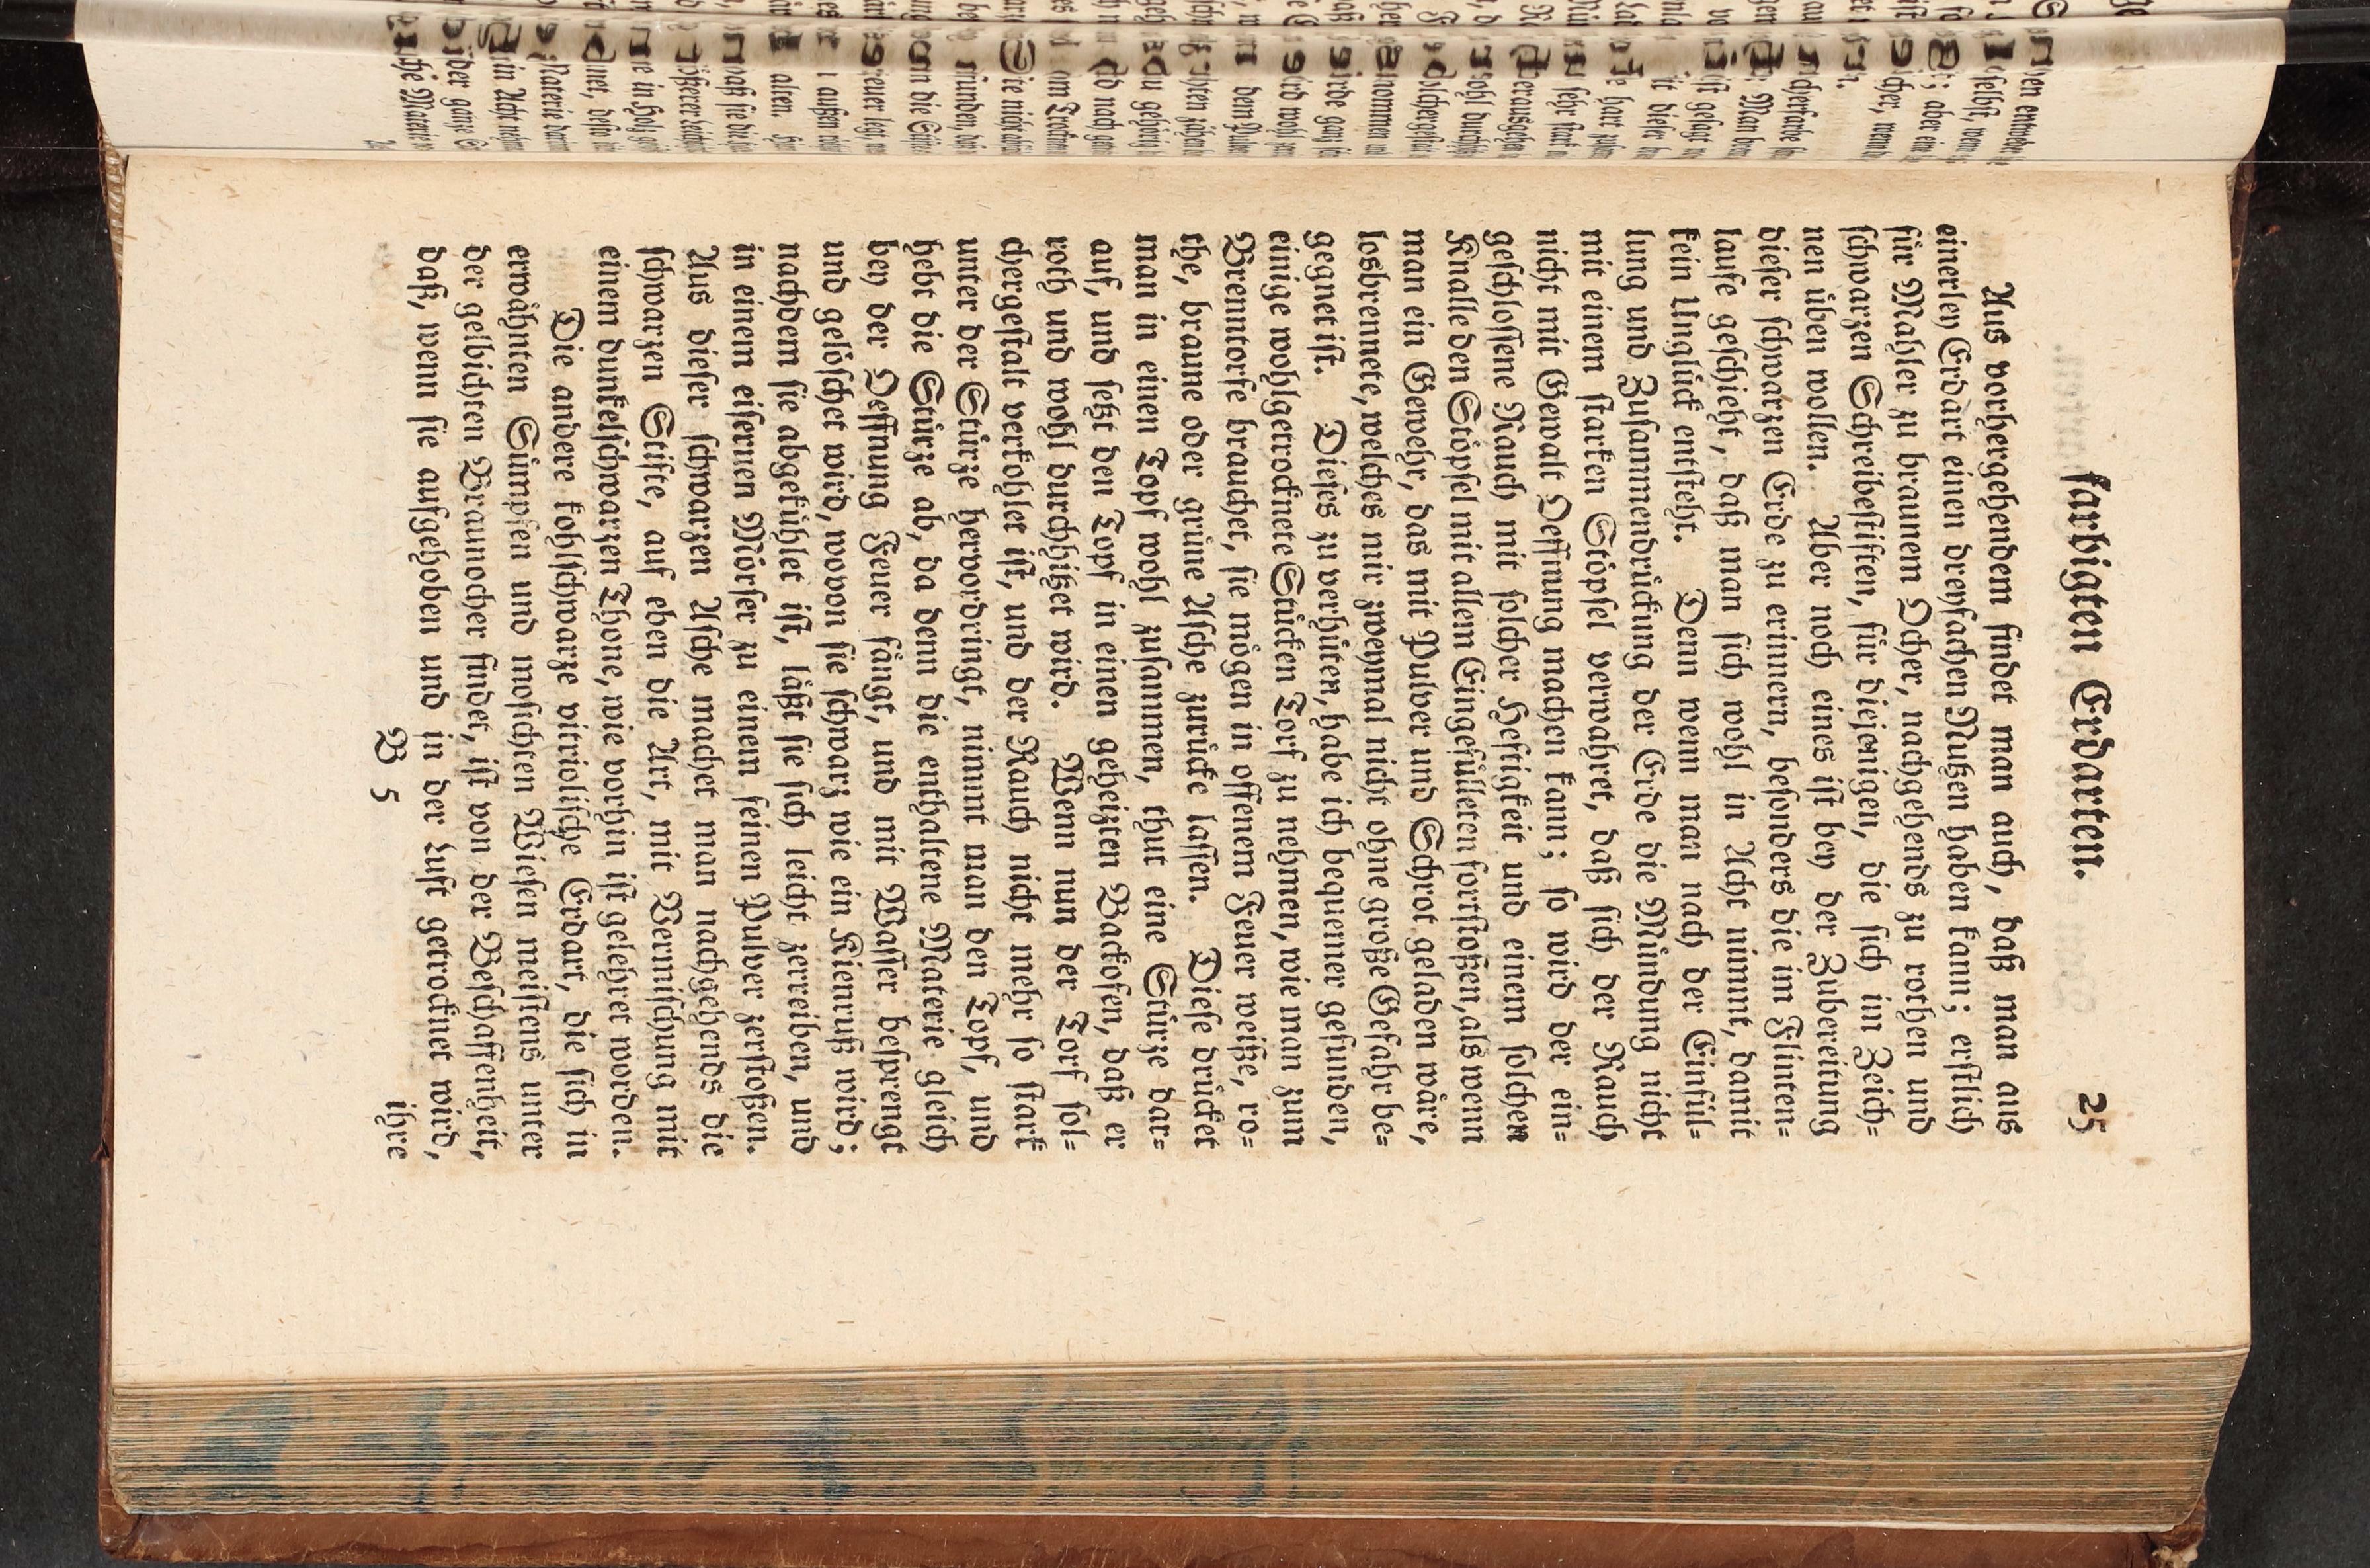 farbigten Erdarten. 25
Aus vorhergehendem findet man auch, daß man aus
einerley Erdart einen dreyfachen Nutzen haben kann; erstlich
für Mahler zu braunem Ocher, nachgehends zu rothen und
schwarzen Schreibestiften, für diejenigen, die sich im Zeich-
nen üben wollen. Aber noch eines ist bey der Zubereitung
dieser schwarzen Erde zu erinnern, besonders die im Flinten-
laufe geschieht, daß man sich wohl in Acht nimmt, damit
kein Unglück entsteht. Denn wenn man nach der Einfül-
lung und Zusammendrückung der Erde die Mündung nicht
mit einem starken Stöpsel verwahret, daß sich der Rauch
nicht mit Gewalt Oeffnung machen kann; so wird der ein-
geschlossene Rauch mit solcher Heftigkeit und einem solchen
Knalle den Stöpsel mit allem Eingefülleten fortstoßen, als wenn
man ein Gewehr, das mit Pulver und Schrot geladen wäre,
losbrennete, welches mir zweymal nicht ohne große Gefahr be-
gegnet ist. Dieses zu verhüten, habe ich bequemer gefunden,
einige wohlgetrocknete Stücken Torf zu nehmen, wie man zum
Brenntorfe brauchet, sie mögen in offenem Feuer weiße, ro-
the, braune oder grüne Asche zurücke lassen. Diese drücket
man in einen Topf wohl zusammen, thut eine Stürze dar-
auf, und setzt den Topf in einen geheizten Backofen, daß er
roth und wohl durchhitzet wird. Wenn nun der Torf sol-
chergestalt verkohlet ist, und der Rauch nicht mehr so stark
unter der Stürze hervordringt, nimmt man den Topf, und
hebt die Stürze ab, da denn die enthaltene Materie gleich
bey der Oeffnung Feuer fängt, und mit Wasser besprengt
und gelöschet wird, wovon sie schwarz wie ein Kienruß wird;
nachdem sie abgekühlet ist, läßt sie sich leicht zerreiben, und
in einem eisernen Mörser zu einem feinen Pulver zerstoßen.
Aus dieser schwarzen Asche machet man nachgehends die
schwarzen Stifte, auf eben die Art, mit Vermischung mit
einem dunkelschwarzen Thone, wie vorhin ist gelehret worden.
Die andere kohlschwarze vitriolische Erdart, die sich in
erwähnten Sümpfen und mosichten Wiesen meistens unter
der gelbichten Braunocher findet, ist von der Beschaffenheit,
daß, wenn sie aufgehoben und in der Luft getrocknet wird,
B 5 ihre